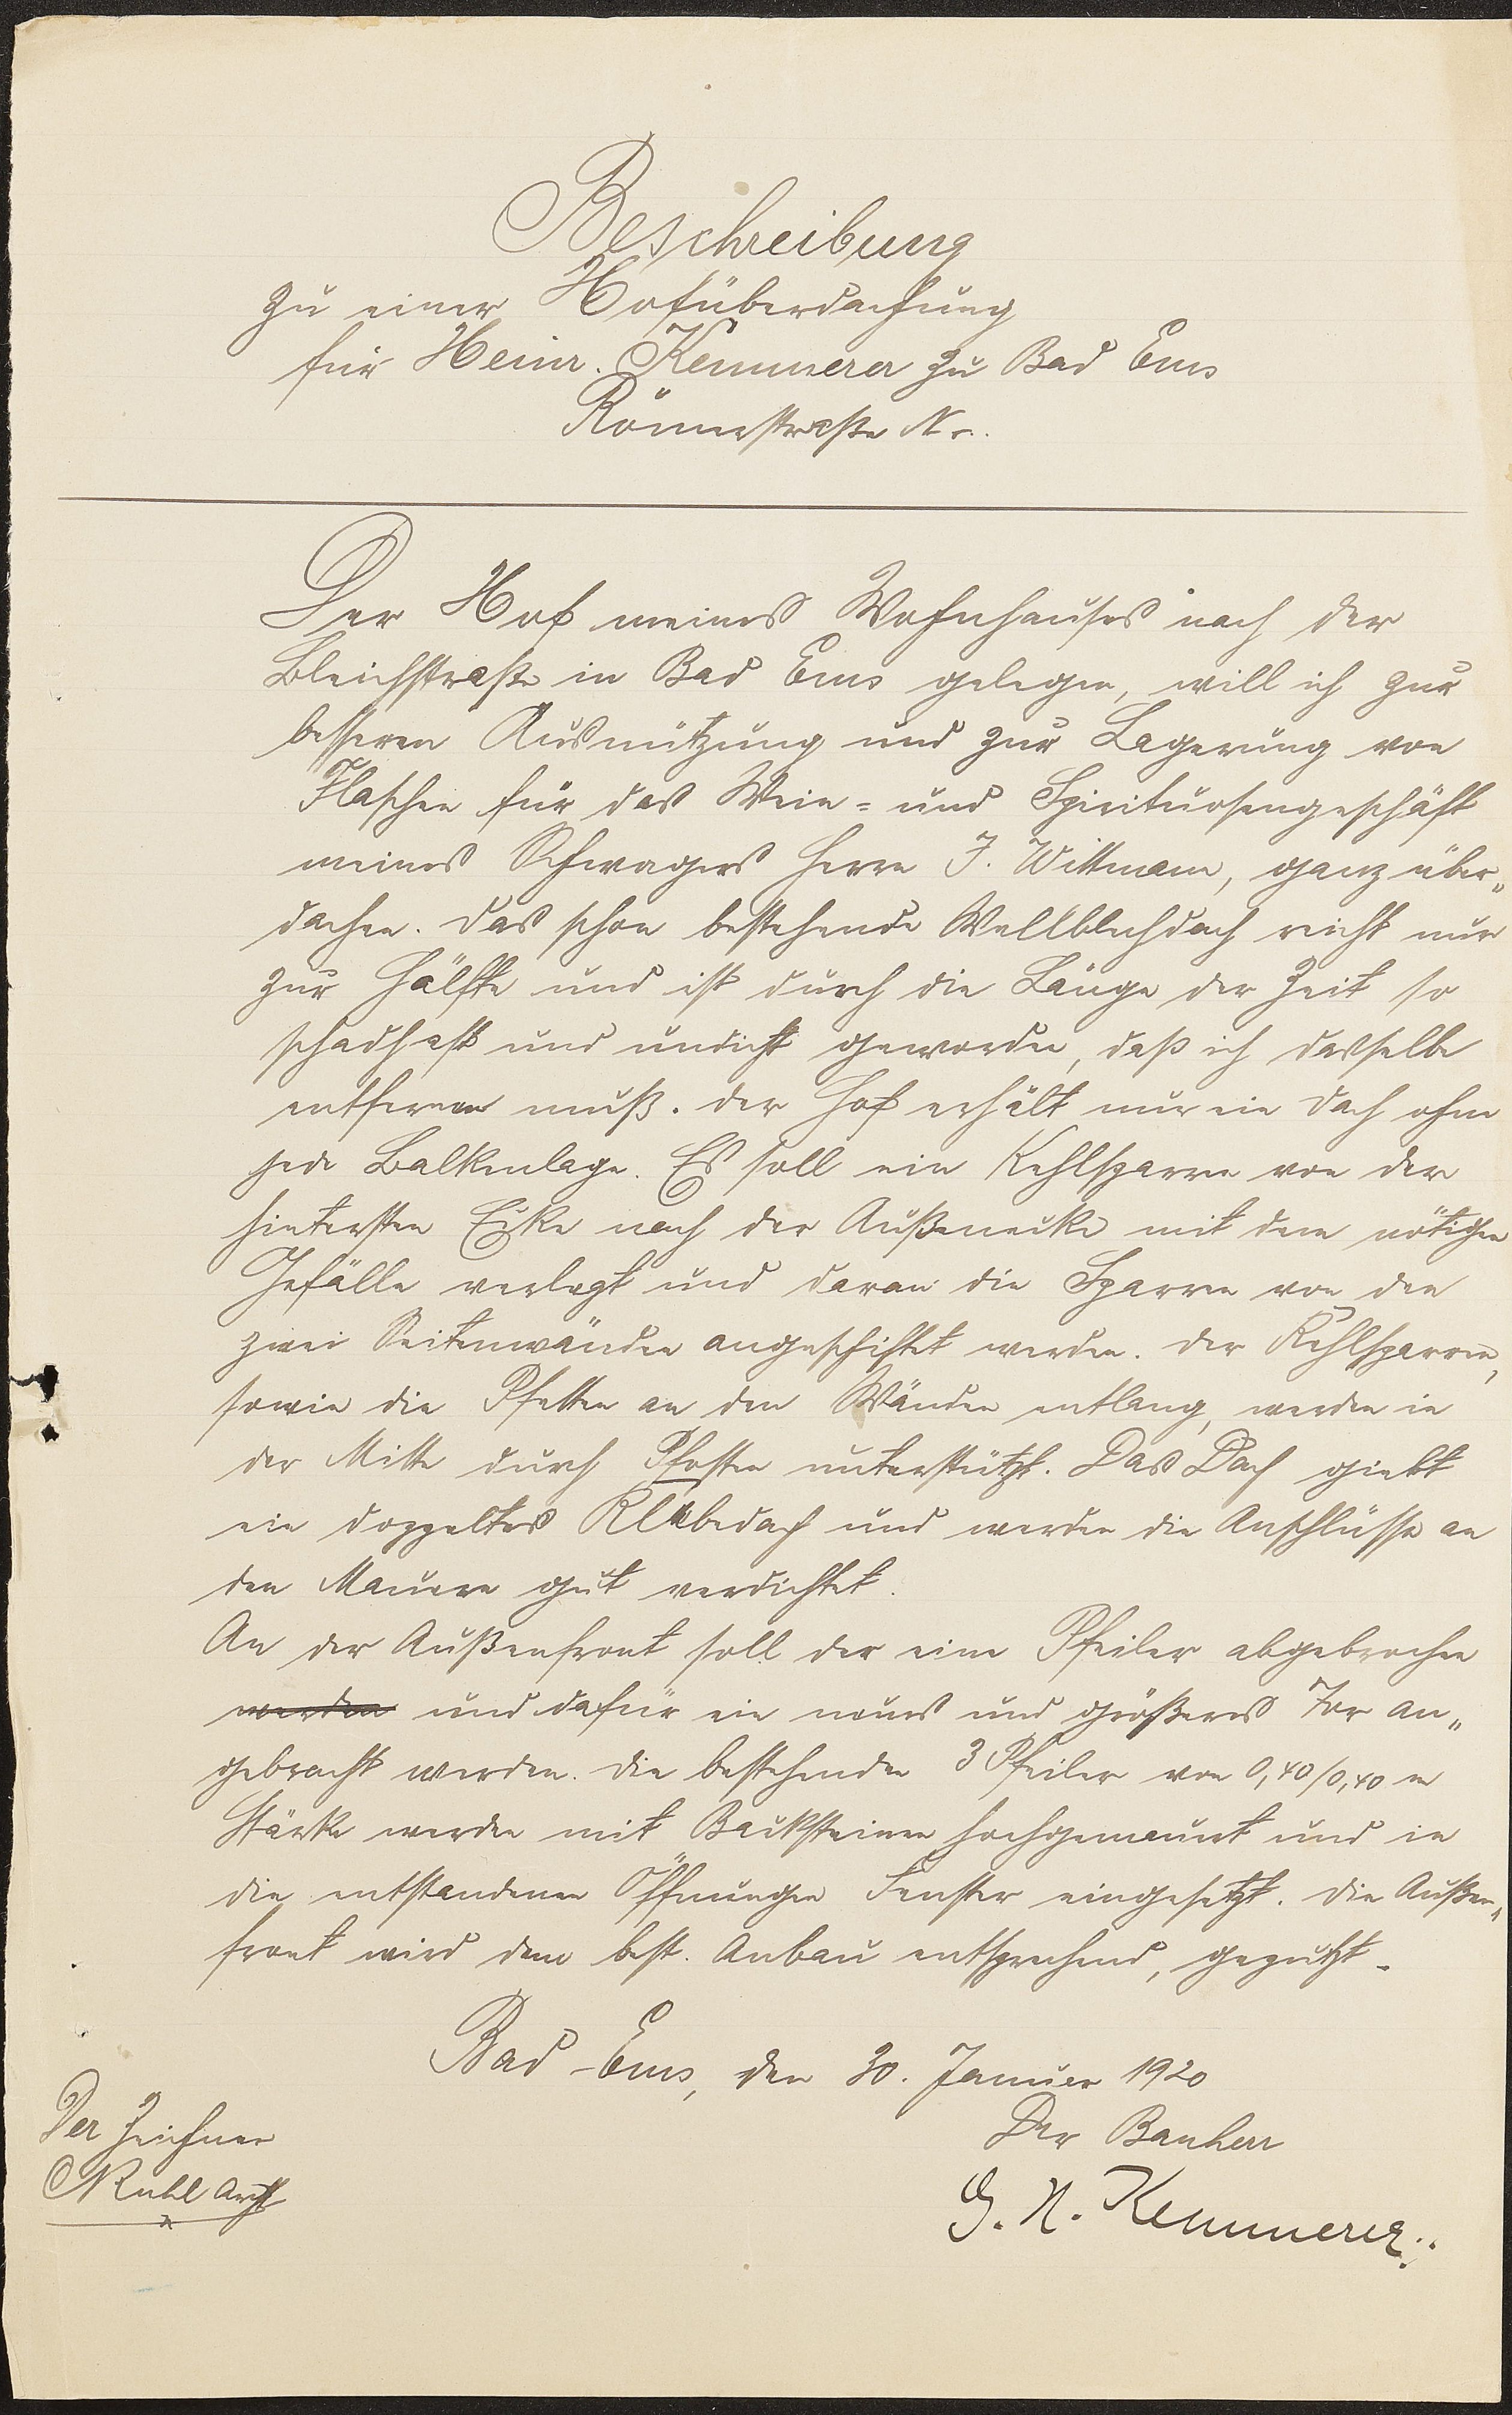 Beschreibung
zu einer Hofüberdachung
für Heinr. Kemmerer zu Bad Ems
Römerstraße Nr.
Der Hof meines Wohnhauses nach der
Bleichstraße in Bad Ems gelegen, will ich zur
besseren Ausnützung und zur Lagerung von
Flaschen für das Wein- und Spirituosengeschäft
meines Schwagers Herrn J. Wittmann, ganz über„
dachen. Das schon bestehende Wellblechdach reicht nur
zur Hälfte und ist durch die Länge der Zeit so
schadhaft und undicht geworden, daß ich dasselbe
entfernen muß. Der Hof erhält nur ein Dach ohne
jede Balkenlage. Es soll ein Kehlsparren von der
hintersten Ecke nach der Außenecke mit dem nötigen
Gefälle verlegt und daran die Sparren von den
zwei Seitenwänden angeschiftet werden. Der Kehlsparren,
sowie die Pfetten an den Wänden entlang, werden in
der Mitte durch Pfosten unterstützt. Das Dach giebt
ein doppeltes Klebedach und werden die Anschlüsse an
den Mauern gut verdichtet.
An der Außenfront soll der eine Pfeiler abgebrochen
werden und dafür ein neues und größeres Tor an„
gebracht werden. Die bestehenden 3 Pfeiler von 0,40/0,40 m
Stärke werden mit Backsteinen hochgemauert und in
die entstandenen Öffnungen Fenster eingesetzt. Die Außen„
front wird dem best. Anbau entsprechend, geputzt.
Bad-Ems, den 30. Januar 1920
Der Bauherr
G. H. Kemmerer
Der Zeichner
Ruhl Arch